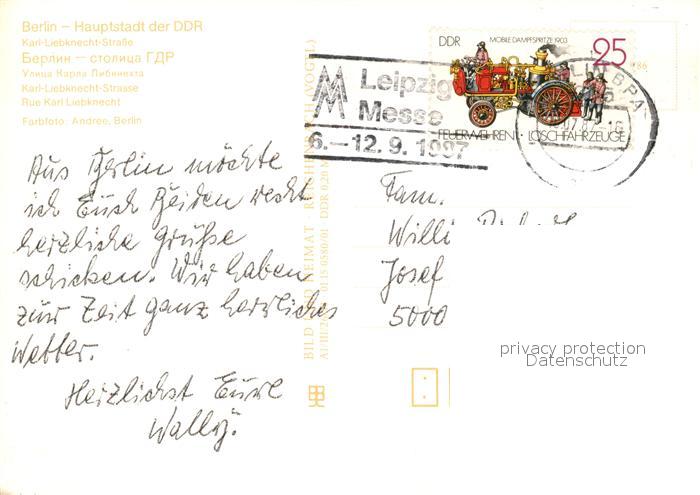 Berlin – Hauptstadt der DDR
Karl-Liebknecht-Straße
Берлин — столица ГДР
Улица Карла Либкнехта
Karl-Liebknecht-Strasse
Rue Karl Liebknecht
Farbfoto: Andree, Berlin
DDR MOBILE DAMPFSPRITZE 1903 25
FEUERWEHREN · LÖSCHFAHRZEUGE
Leipzig
Messe
6.—12. 9. 1987
Aus Berlin möchte
ich Euch Beiden recht
herzliche Grüße
schicken. Wir haben
zur Zeit ganz herrliches
Wetter.
Herzlichst Eure
Wally.
BILD UND HEIMAT · REICHENBACH (VOGTL)
01 15 0580/01 DDR 0,20 M
Fam.
Willi
Josef
5000
privacy protection
Datenschutz